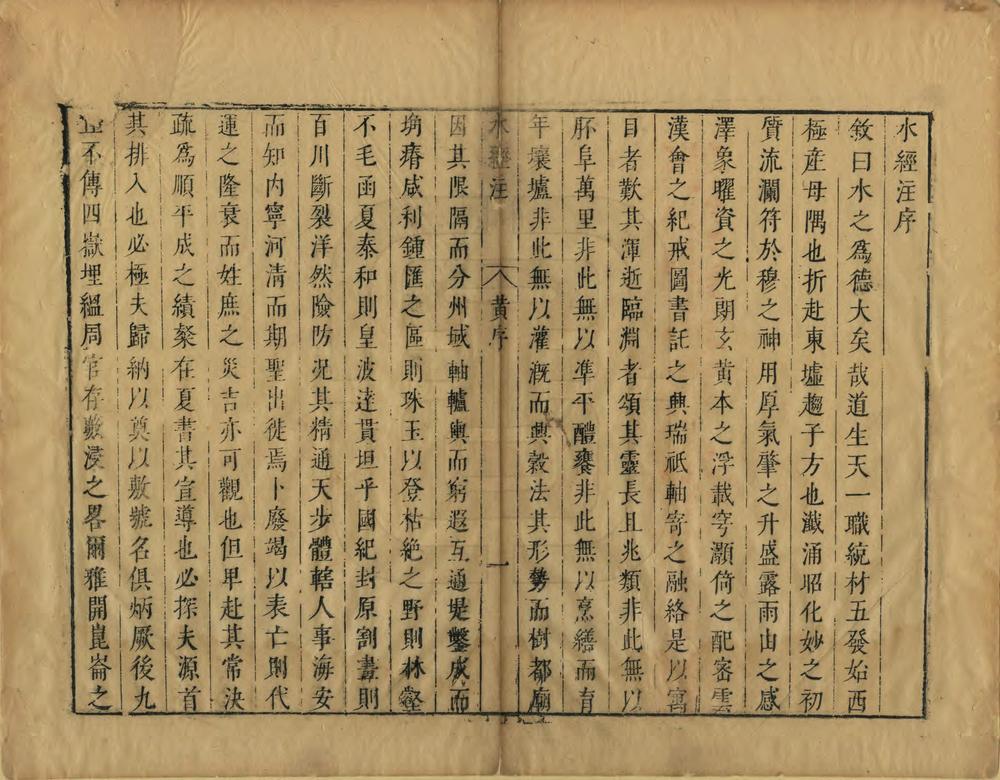 水經注序
敘曰水之為德大矣哉道生天一職統材五發始西
極產母隅也折赴東墟趨子方也瀸涌昭化妙之初
質流瀾符於穆之神用厚氣肇之升盛露雨山之感
澤象曜資之光朗玄黃本之浮載穹灝倚之配密雲
漢會之紀戒圖書託之典瑞祗軸寄之融絡是以寓
目者歎其渾逝臨淵者頌其靈長且兆類非此無以
胚阜萬里非此無以準平醴饔非此無以烹繕而育
年壤壚非此無以灌溉而興穀法其形勢而樹都廟
水經注 黃序 一
因其限隔而分州域軸轤輿而窮遐互通堤鑿成而
埆瘠咸利鍾匯之區則珠玉以登枯絕之野則林壑
不毛函夏泰和則皇波達貫坦乎國紀封原割畫則
百川斷裂洋然險防況其精通天步體轄人事海安
而知內寧河清而期聖出徙焉卜廢竭以表亡則代
運之隆衰而姓庶之災吉亦可觀也但畢赴其常決
疏為順平成之績粲在夏書其宣導也必探夫源首
其排入也必極夫歸納以奠以敷號名俱炳厥後九
丘不傳四嶽埋縕周官存藪浸之畧爾雅開崑崙之